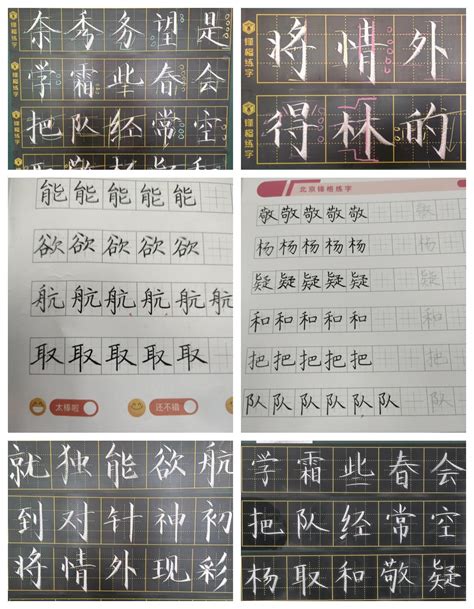 奈秀务望是
学霜些春会
把队经常空
将情外
得林的
能能能能能
欲欲欲欲欲
航航航航航航
取取取取取
太棒啦
还不错
北京锋格练字
敬敬敬敬敬敬
杨杨杨杨杨杨
疑疑疑疑疑疑
和和和和和和
把把把把把把
队队队队队队队
就独能欲航
到对针神初
将情外现彩
学霜些春会
把队经常空
杨取和敬疑